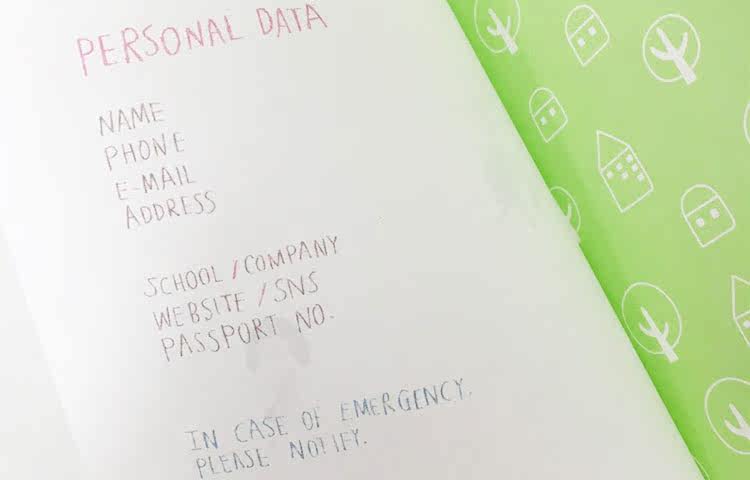 PERSONAL DATA
NAME
PHONE
E-MAIL
ADDRESS
SCHOOL / COMPANY
WEBSITE / SNS
PASSPORT NO.
IN CASE OF EMERGENCY.
PLEASE NOTIFY.